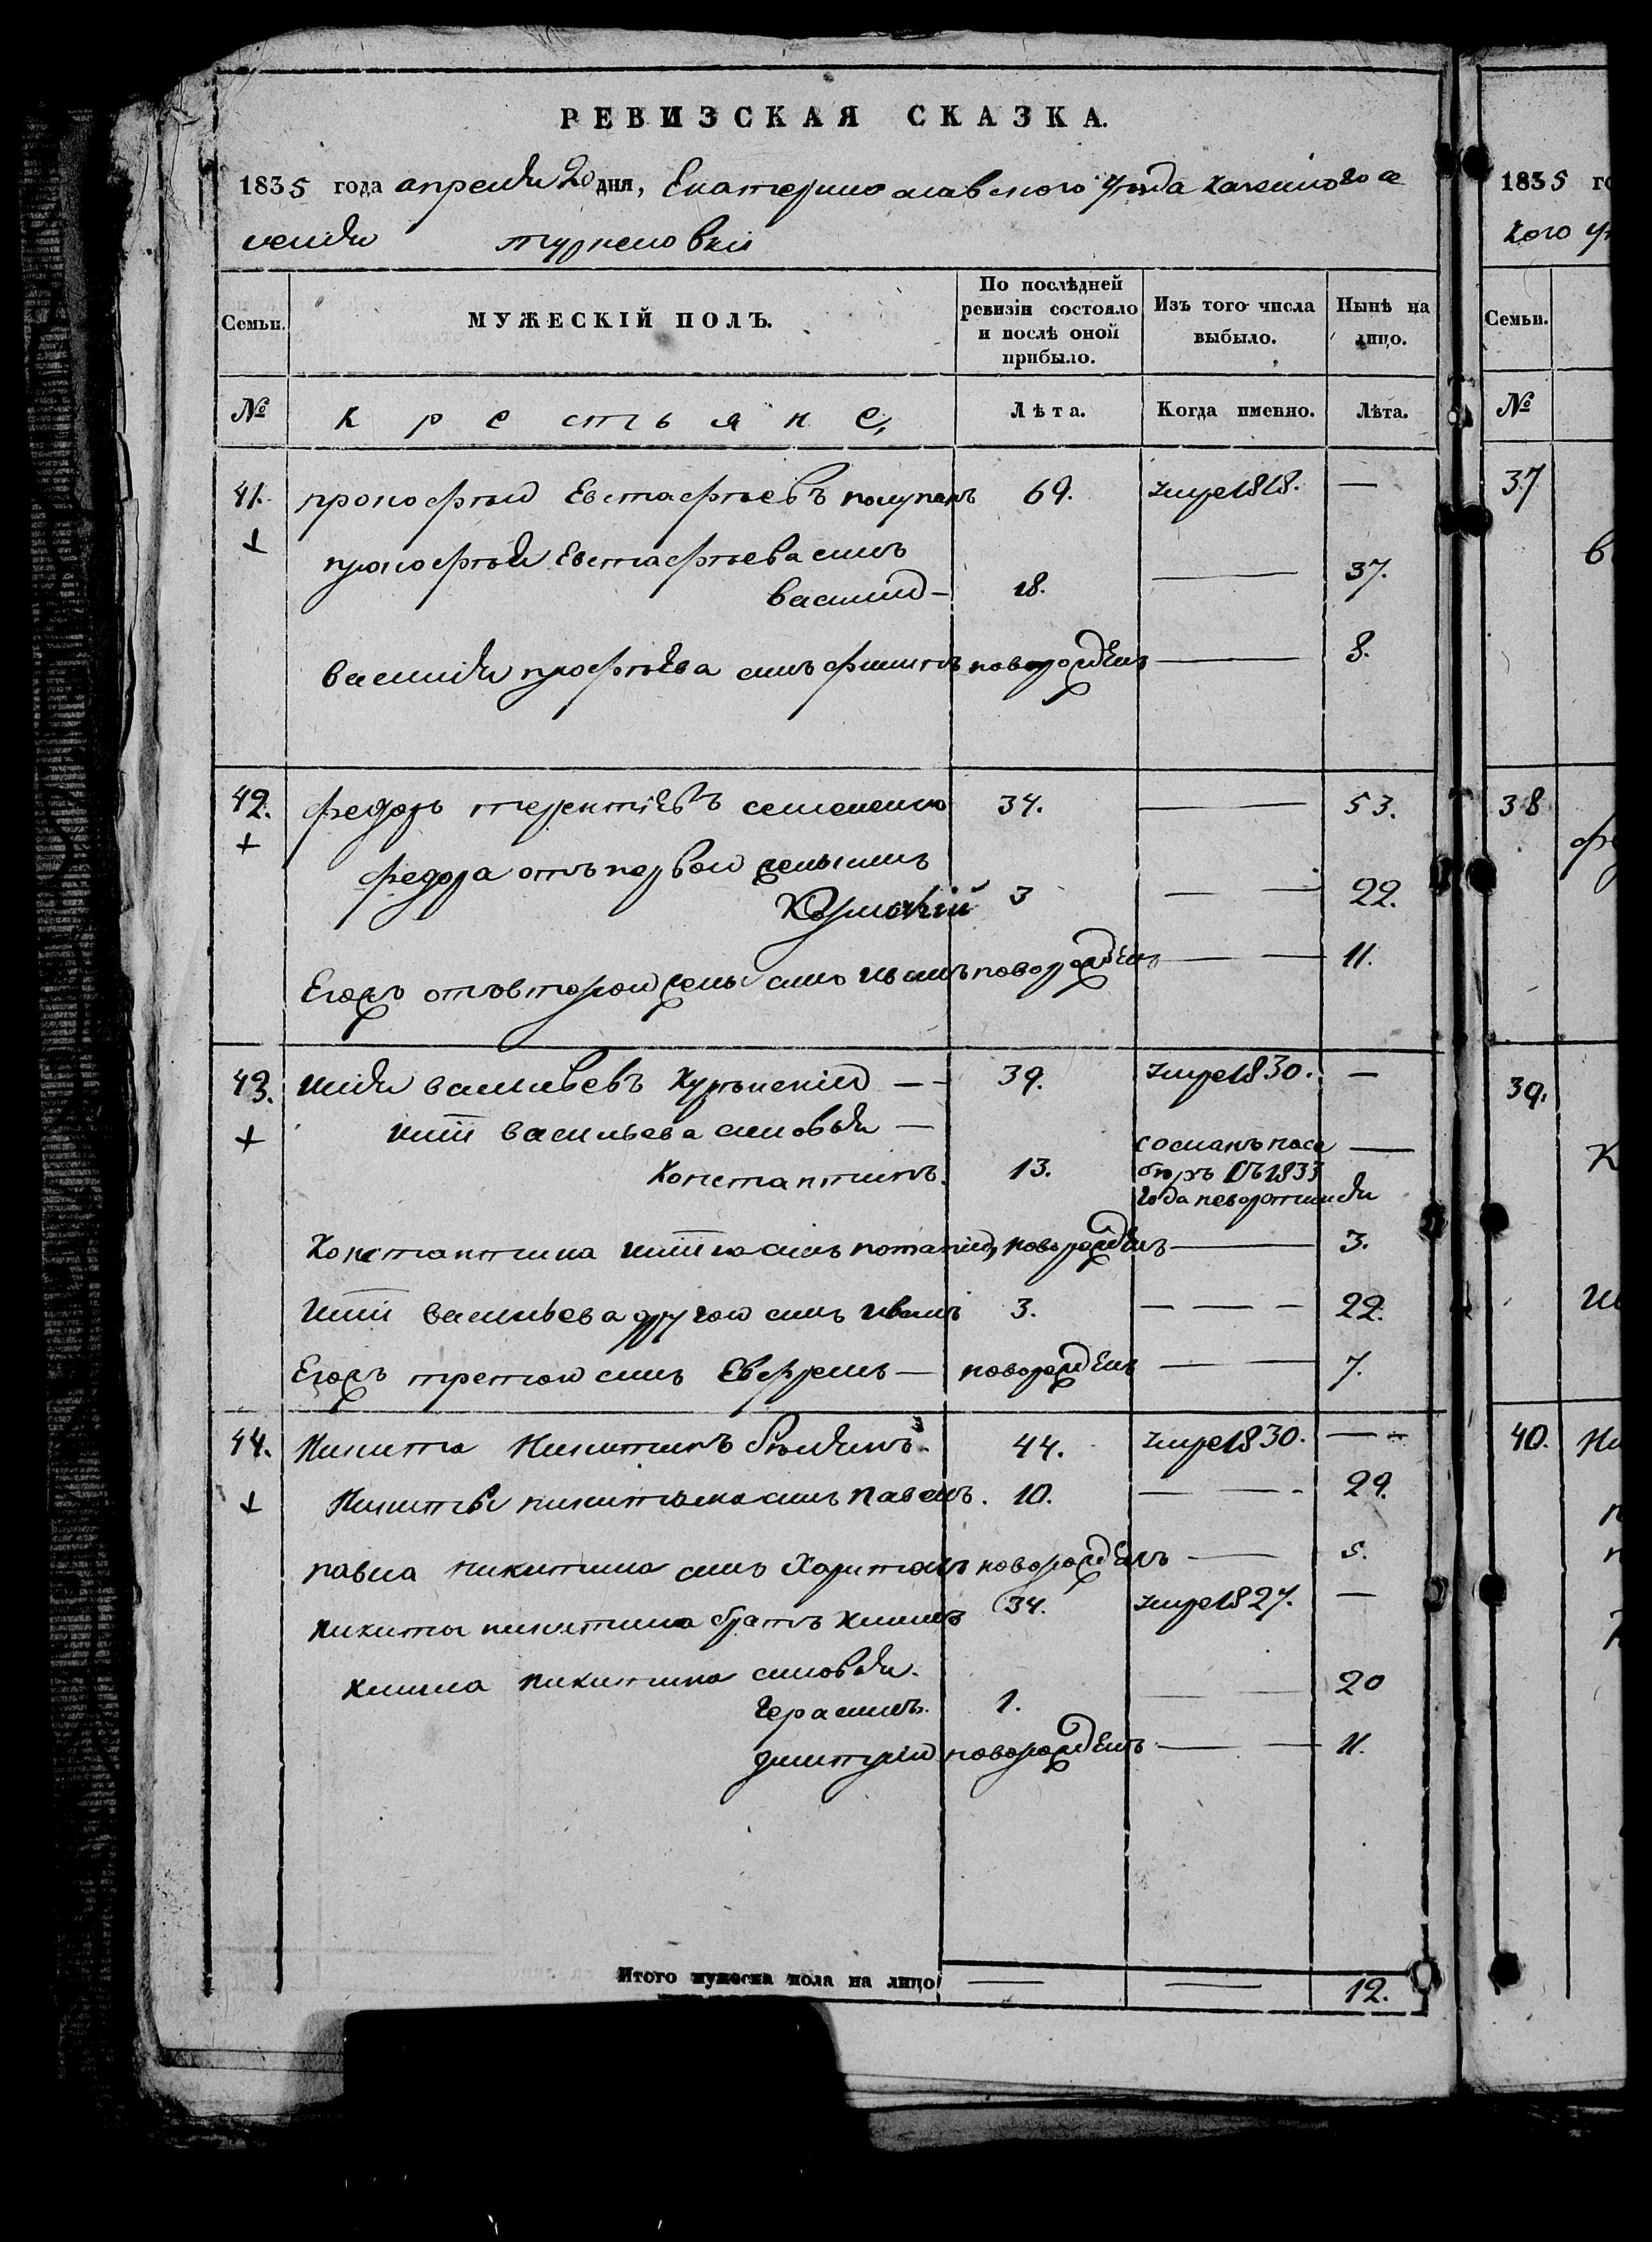 РЕВИЗСКАЯ СКАЗКА.
1835 года апреля 20 дня, Екатеринославского Уезда казенного се
ления
МУЖЕСКІЙ ПОЛЪ.
Семьи.
По послѣдней ревизіи состояло и послѣ оной прибыло.
Изъ того числа выбыло.
Нынѣ на лицо.
№ крестьяне, Лѣта. Когда именно. Лѣта.
41. прокофтий Евстафтьевъ 69. умре 1818. —
прокофтия Евстафтьева синъ
василий — 18. — 37.
василия профтьева синъ филипъ новорожденъ — 8.
42. федоръ терентіевъ семененко 34. — 53.
федора отъ первой жены синъ
3 — — 22.
Егожъ отъ второй жены синъ новорожденъ — — 11.
43. илия васильевъ 39. умре 1830. —
иліи васильева синовья —
Константинъ. 13. сосланъ на се
1833 —
года
Константина синъ потапій новорожденъ — 3.
Иліи васильева другой синъ иванъ 3. — — — 22.
Егожъ третой синъ Евфремъ — новорожденъ — — 7.
44. Никита Никитинъ 44. умре 1830. — —
Никиты никитина синъ павелъ. 10. — — - 29.
павла никитина синъ Харитонъ новорожденъ — 5.
никиты никитина братъ климъ 34. умре 1827. —
клима никитина синовья.
Герасимъ. 1. — — 20
дмитрій новорожденъ — — 11.
Итого мужеска пола на лицо — — 12.
1835 го
кого у
Семьи.
№
37
38
39.
40.